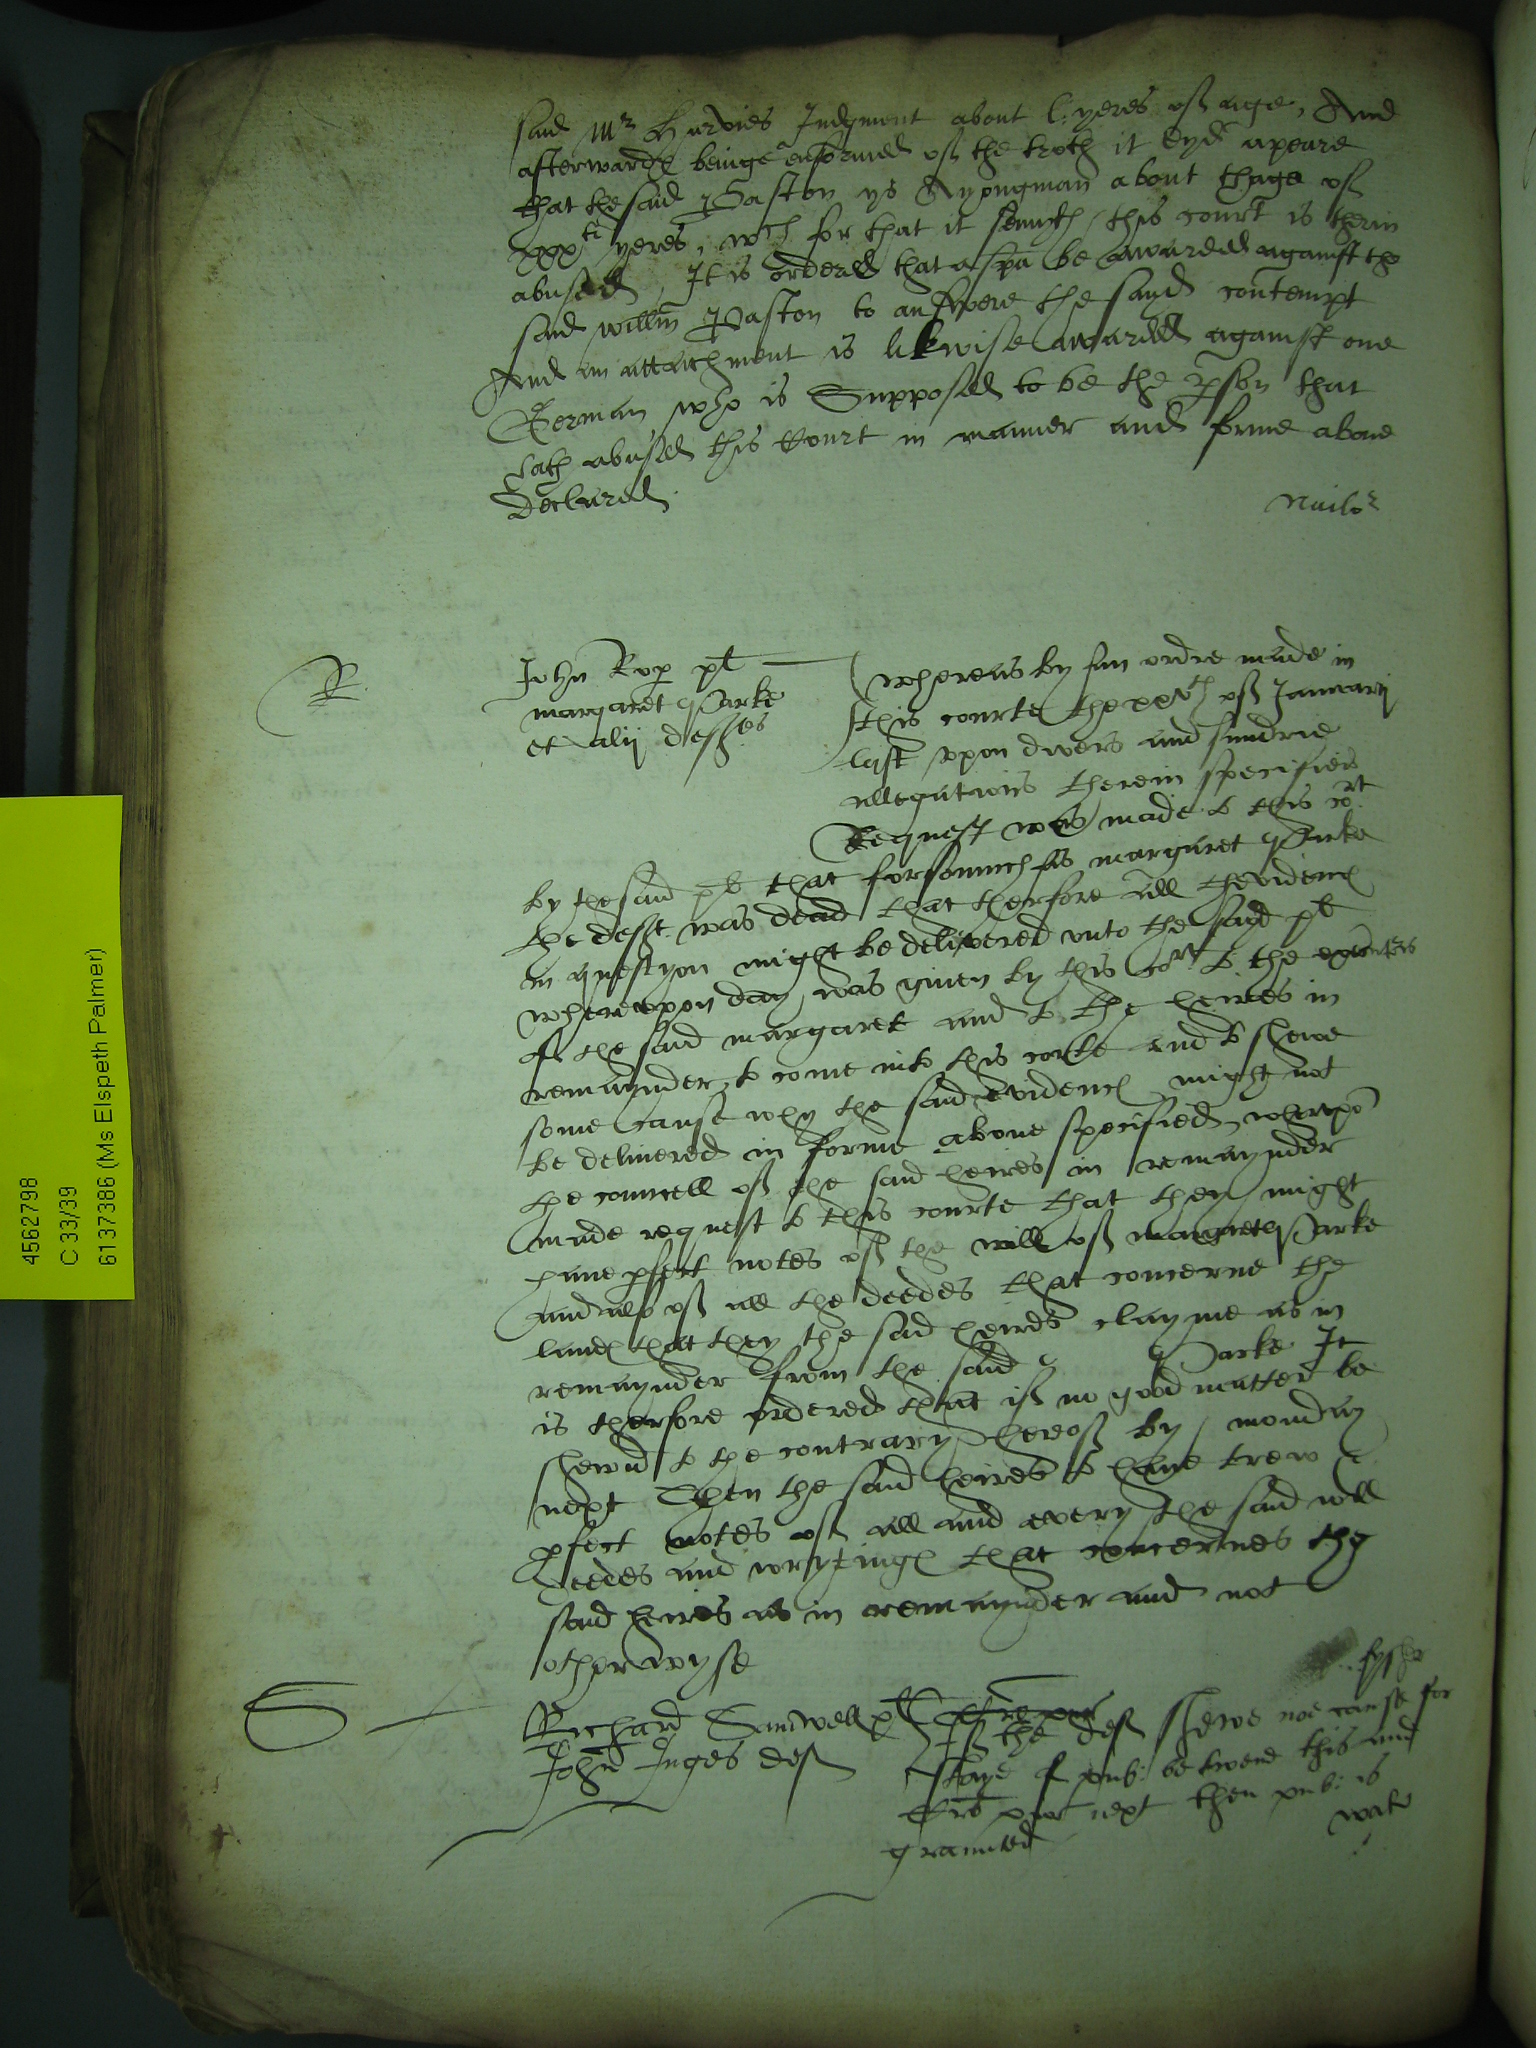 said Mr Harvies Judgment about l: yeres off age, And
afterwardes beinge enformed off the troth it dyd apeare
that the said Paston ys A yongman about thage off
xxxti yeres, wch for that it semeth this court is therin
abused, It is ordered that a spa be awarded against the
said Willm Paston to answere the sayd contempt
And an attachment is likwise awarded against one
German who is Supposed to be the pson that
hath abused this Court in manner and forme above
Declared.
Nailor
R
John Rop pl
margaret Parke
et alij deffes
whereas by an ordre made in
this courte the xxvth off Januarij
last upon divers and sundrie
allegations therein specified
Request was made to this cort
by the said pl that forsomuch as margaret Parke
the defft was dead that therfore all thevidences
in questyon might be delivered unto the said pl
whereupon day was given by this cort to the executors
off the said margaret and to the heires in
remaynder to come into this corte and to shewe
some cause why the said evidences might not
be delivered in forme above specified, wherupo
the councell off the said heires in remaynder
made request to this courte that they might
have pfect notes off the will off margaret Parke
and also off all the deedes that concerne the
landes that they the said heires clayme as in
remaynder from the said Parke It
is therfore ordered that iff no good matter be
shewed to the contrary hereoff by monday
next Then the said heires to have trew &
pfect notes off all and every the said will
deedes and wrytinges that concernes the
said heires as in remaynder and not
otherwyse
fyssher
S
Richard Samwell pl
John Inges def
Iff the def shewe noe cause for
staye of pub: betwene this and
next then pub: is
graunted
4562798
C 33/39
6137386 (Ms Elspeth Palmer)